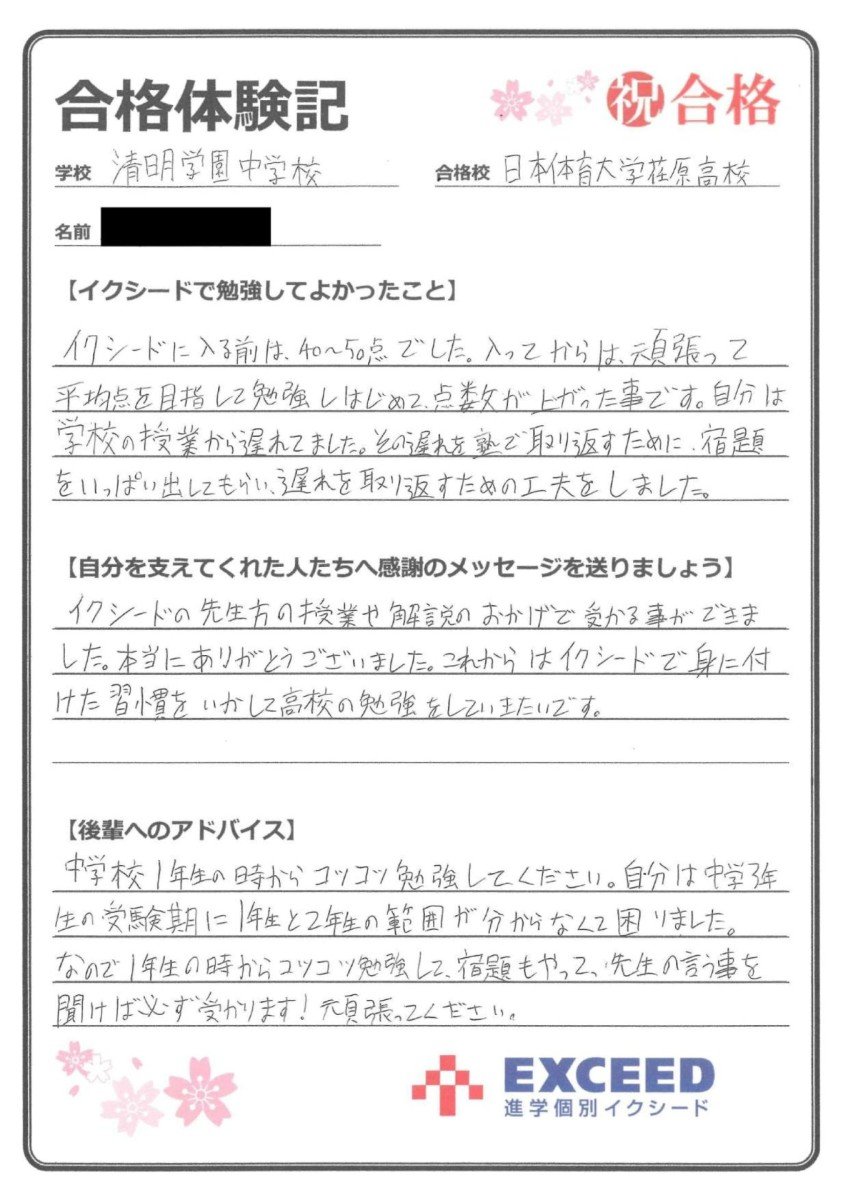 合格体験記
祝 合格
学校 清明学園中学校
合格校 日本体育大学荏原高校
名前
【イクシードで勉強してよかったこと】
イクシードに入る前は、40〜50点でした。入ってからは、頑張って
平均点を目指して勉強しはじめて、点数が上がった事です。自分は
学校の授業から遅れてました。その遅れを塾で取り返すために、宿題
をいっぱい出してもらい、遅れを取り返すための工夫をしました。
【自分を支えてくれた人たちへ感謝のメッセージを送りましょう】
イクシードの先生方の授業や解説のおかげで受かる事ができま
した。本当にありがとうございました。これからはイクシードで身に付
けた習慣をいかして高校の勉強をしていきたいです。
【後輩へのアドバイス】
中学校1年生の時からコツコツ勉強してください。自分は中学3年
生の受験期に1年生と2年生の範囲が分からなくて困りました。
なので1年生の時からコツコツ勉強して、宿題もやって、先生の言う事を
聞けば必ず受かります!頑張ってください。
EXCEED
進学個別イクシード